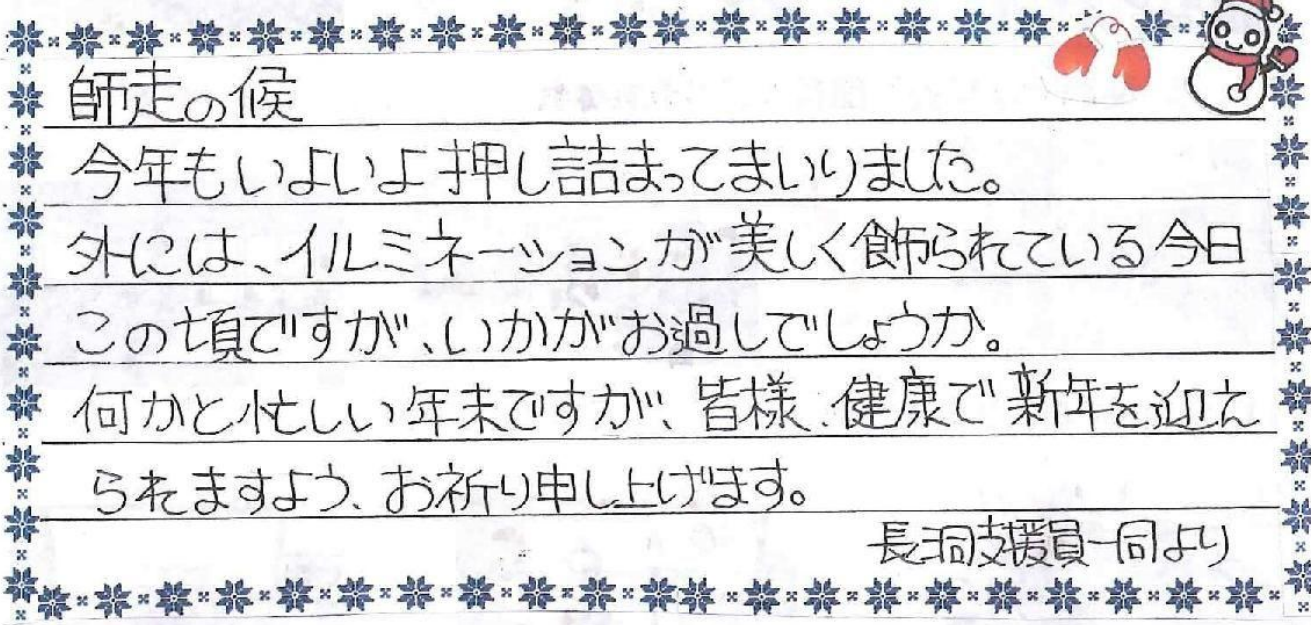 師走の候
今年もいよいよ押し詰まってまいりました。
外には、イルミネーションが美しく飾られている今日
この頃ですが、いかがお過しでしょうか。
何かと忙しい年末ですが、皆様、健康で新年を迎え
られますよう、お祈り申し上げます。
長洞支援員一同より